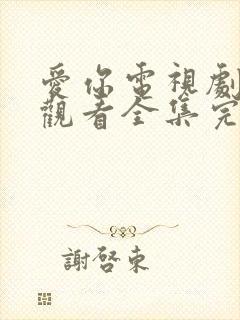 愛你電視劇
觀看全集完
謝啓東